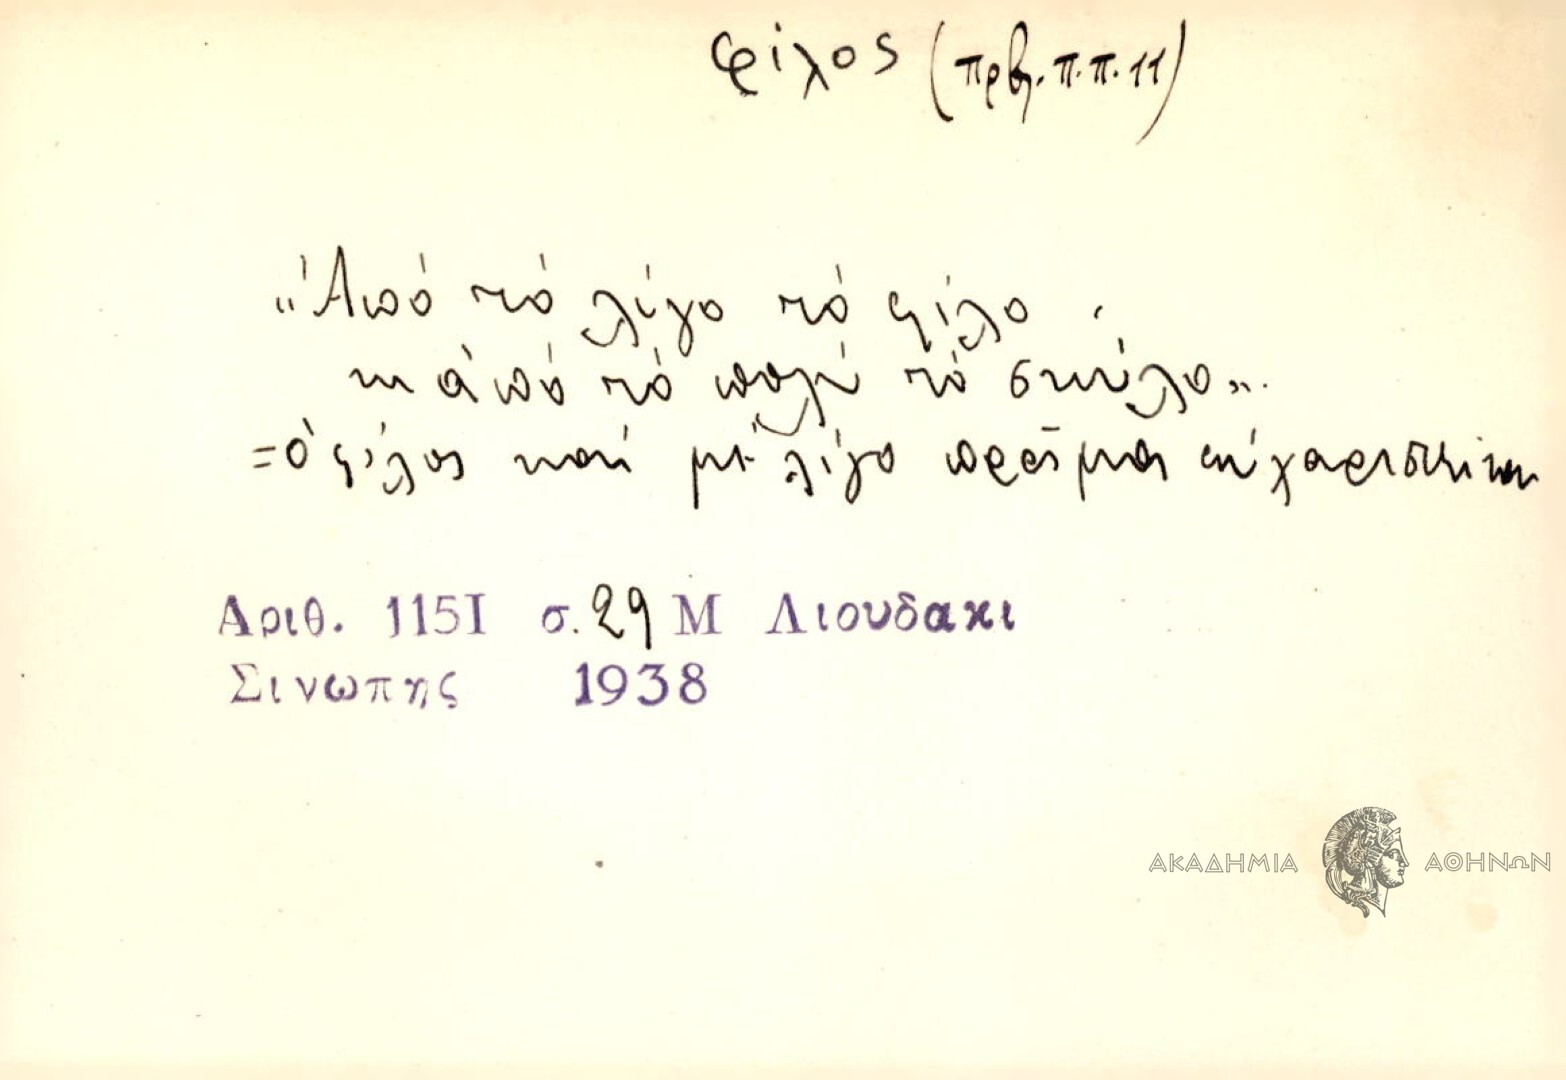 φίλος (πρβ. π.π. 11)
"Ἀπό τό λίγο τό φίλο
κι ἀπό τό πολύ τό σκύλο".
= ὁ φίλος καί μέ λίγο πρᾶμα εὐχαριστιέται
Αριθ. 1151 σ. 29 Μ Λιουδακι
Σινωπης 1938
ΑΚΑΔΗΜΙΑ ΑΘΗΝΩΝ